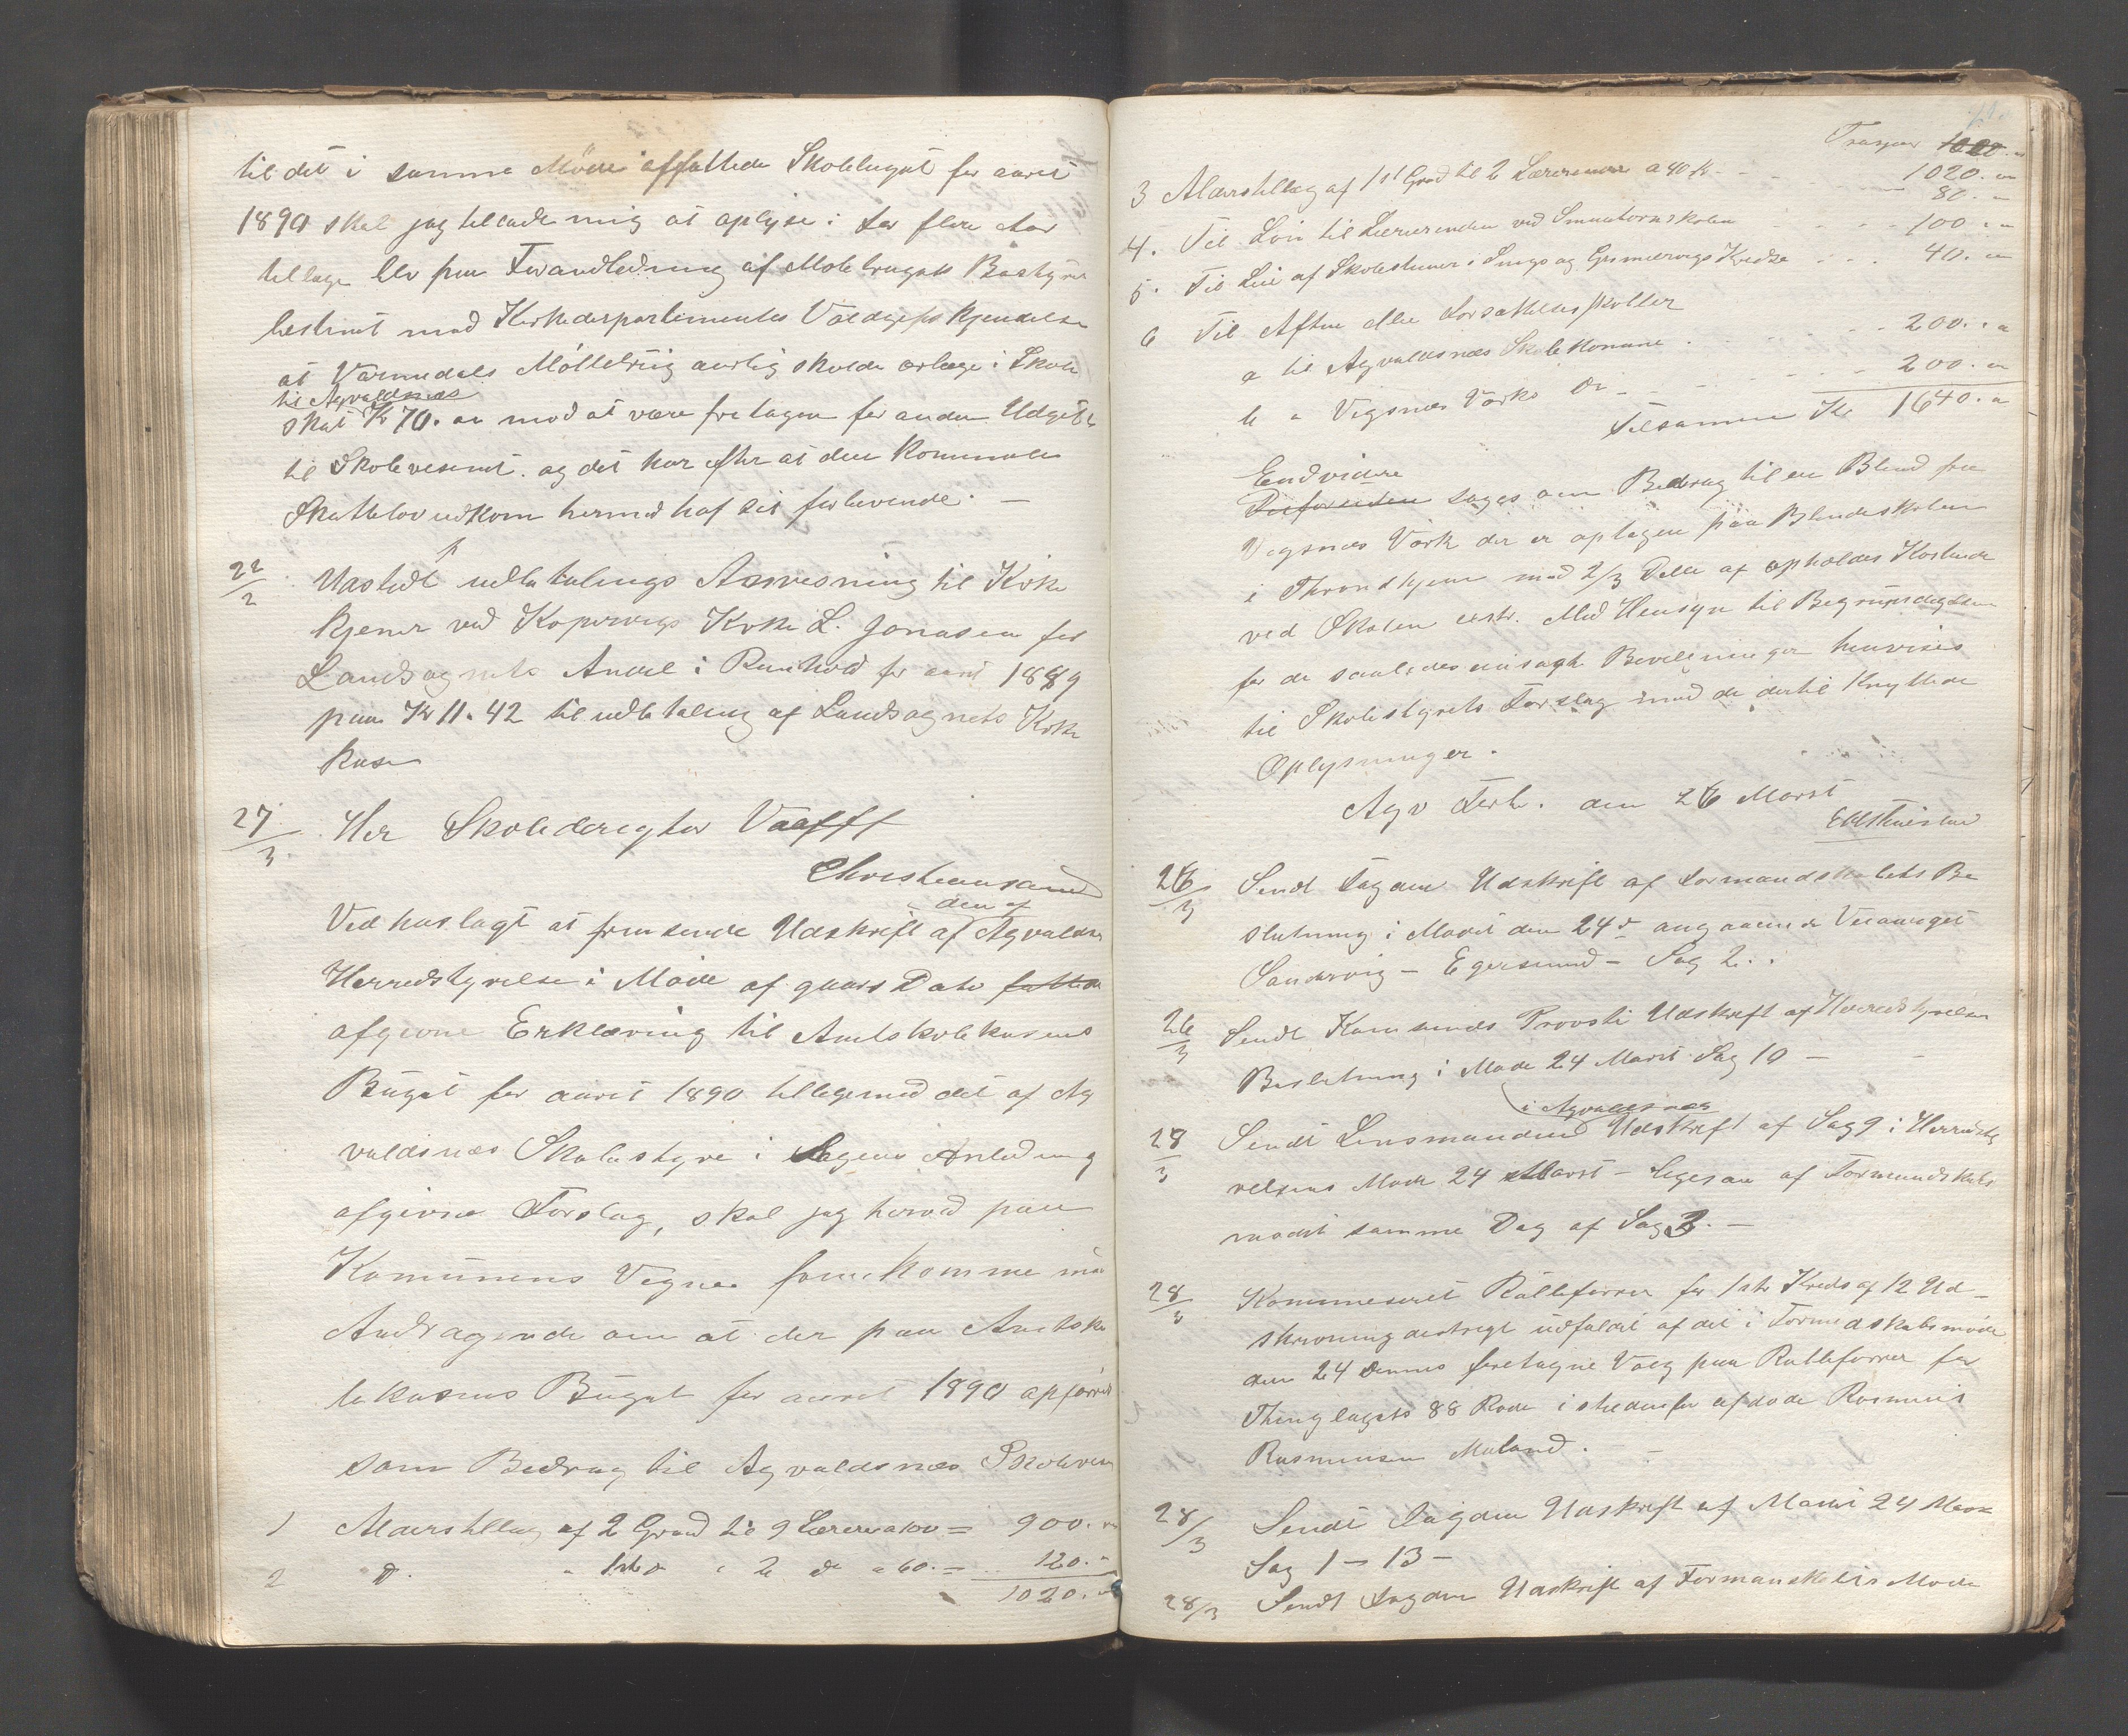 til det i samme Møde affattede Skolbugat for aaret
1890 skal jag tillade mig at oplyse: for flere Aar
tillage blv paa Foranledning af Molebrugets Bestyrer
bestemt med Kirkedepartementes Kjendelse
at Varnedals Møllebrug aarlig skulde erlæge i Skole
til Agvaldsnes
skat Kr 70. " mod at være fretagen for anden Udgift
til Skolevesenet. og det har efter at den Komunale
Skattelov udkom hermed haf sit forblivende. —
22/2 Udstedt udbetalings Anvisning til Kirke
kjener ved Kopervigs Kirke L. Jonasen for
Landsognets Andel i Renhold for aaret 1889
paa Kr 11.42 til udbetaling af Landsognets Kirke
kase
27/3 Her Skoledereqtør Vaafft
Christiansand
den af
Vedhaslagt at fremsende Udskrift af Agvaldsn
Herredstyrelse i Møde af gaars Dato fattede
afgivne Erklæring til Amtskolekasens
Bugat for aaret 1890 tillegemed det af Ag
valdsnes Skolestyre i Sagens Anledning
afgivne Forslag, skal jag herved paa
Komunens Vegne fremkomme med
Andragende om at der paa Amtsko
lekasens Bugat for aaret 1890 apføres
som Bedrag til Agvaldsnes Skoleves
1 Alderstillag af 2 Grad til 9 Lærere a 100 = 900. "
2 Do. " 1ste do " 2 do " 60. = 120. "
1020. "
Traspor 1020. "
1020. "
3 Alderstillæg af 1st Grad til 2 Lærerinner a 40 k - - 80. "
4. Til Løn til Lærerinden ved Smaabørnskolen 100. "
5. Til Leie af Skolestuer i og Kredse . . . 40. "
6 Til Aften eller Forsættelsesskoller
a til Agvaldsnes Skolekomune . . . 200. "
b " Vigsnes Værks do - - - 200. "
Tilsamme Kr 1640. "
Endvidere
Desforuden søges om Bedrag til en Blind fra
Vigsnes Værk der er optagen paa Blindeskolen
i Throndhjem med 2/3 Dele af opholdes Kostende
ved Skolen extr. Med Hensyn til Begrundelsen
for de saaledes ansøgte Bevilgninger henvises
til Skolestyrets Forslag med de dertil knyttede
Oplysninger.
Agv Ferk. den 26 Marst
26/3 Sendt Fogden Udskrift af Formandskabets Be
slutning i Mødet den 24de angaaende
Sandervig – Egersund – Sag 2..
26/3 Sendt Karmsunds Provsti Udskrift af Herredstyrelsen
Beslutning i Møde 24 Marst Sag 10 —
i Agvaldsnes
28/3 Sendt Lensmanden Udskrift af Sag 9 i Herredsty
relsens Møde 24 Marst – ligesaa af Formandskabs
mødet samme Dag af Sag 3. —
28/3 Kommeseret Rulleførrer for 1ste Kreds af 12 Ud-
skrivningdestrigt udfaldet af det i Formandskabsmøde
den 24 Dennes foretagne Valg paa Rulleførrer for
Thinglagets 88 Rode i stedenfor afdøde Rasmus
Rasmusen Maland. —
28/3 Sendt Fogden Udskrift af Mødet 24 Mars
Sag 1 – 13 –
28/3 Sendt Fogden Udskrift af Formanskabets Møde